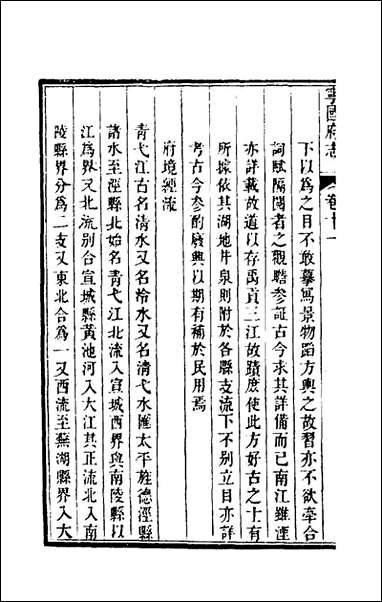 寧國府志 卷十一
下以爲之目不敢摹寫景物蹈方輿之故習亦不欲牽合
詞賦隔閡者之觀瞻參証古今求其詳備而已南江雖湮
亦詳載故道以存禹貢三江故蹟庶使此方好古之士有
所據依其湖地井泉則附於各縣支流下不別立目亦詳
考古今參酌廢興以期有補於民用焉
府境經流
青弋江古名清水又名冷水又名清弋水匯太平旌德涇縣
諸水至涇縣北始名青弋江北流入宣城西界與南陵縣以
江爲界又北流別合宣城縣黃池河入大江其正流北入南
陵縣界分爲二支又東北合爲一又西流至蕪湖縣界入大